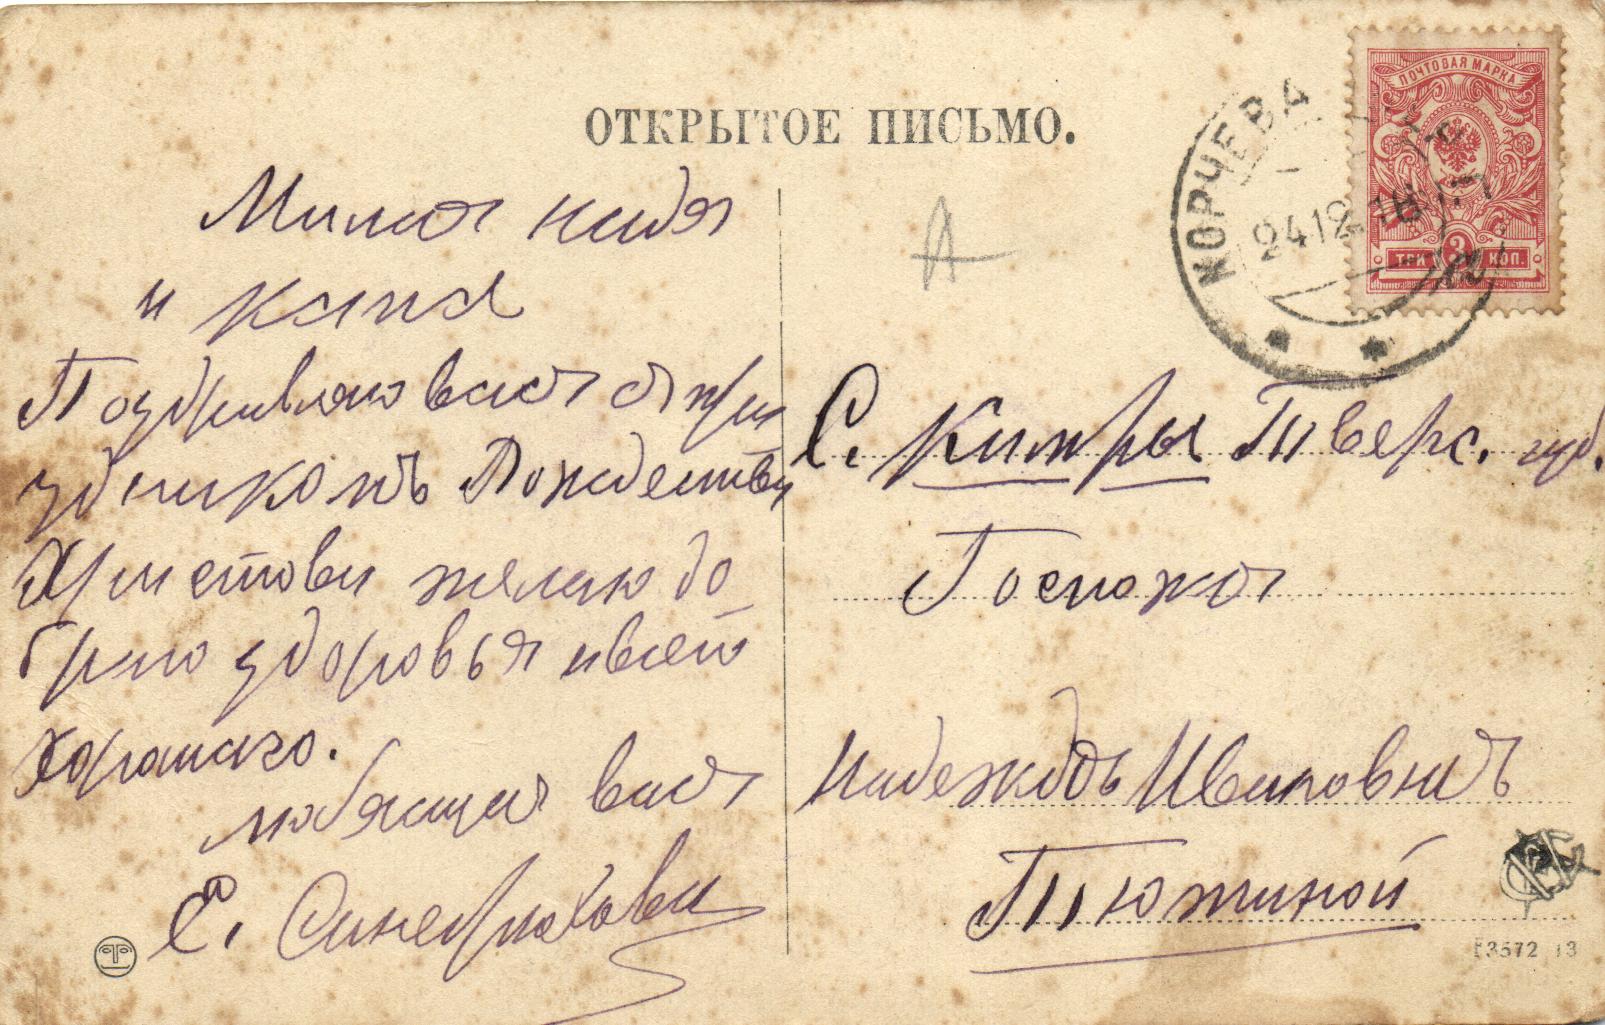 ОТКРЫТОЕ ПИСЬМО.
ПОЧТОВАЯ МАРКА
3
ТРИ КОП.
КОРЧЕВА
24 12
А
Милая надя
и капа
Поздравляю вас с пра
здникомъ Рождества
Христова желаю до
браго здоровья и всего
хорошаго.
любящая вас
Е. Синебрюхова
С. Кимры Тверс. губ.
Госпожа
надеждѣ Ивановнѣ
Тюжиной
E3572 13